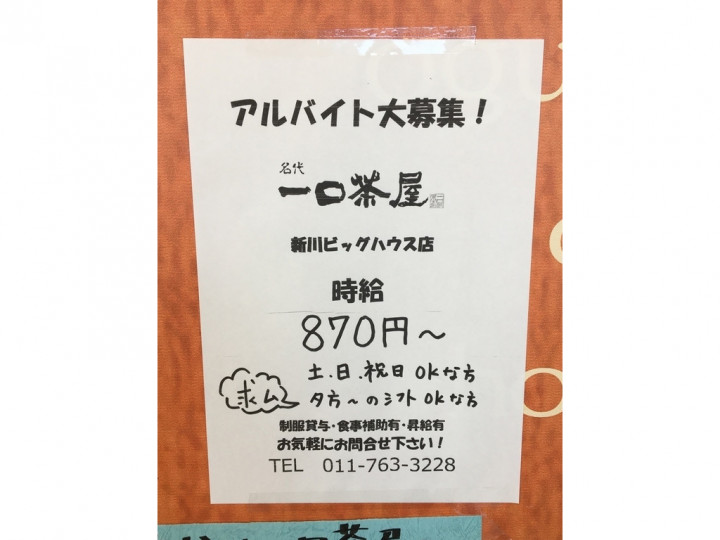 アルバイト大募集!
名代
一口茶屋
新川ビッグハウス店
時給
870円～
求ム
土.日.祝日OKな方
夕方～のシフトOKな方
制服貸与・食事補助有・昇給有
お気軽にお問合せ下さい!
TEL 011-763-3228